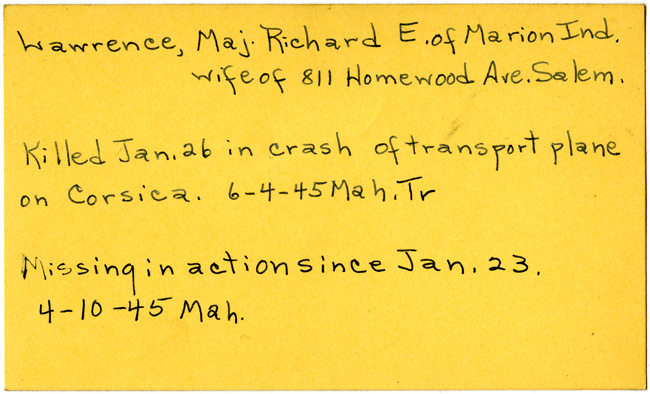 Lawrence, Maj. Richard E. of Marion Ind.
wife of 811 Homewood Ave. Salem.
Killed Jan. 26 in crash of transport plane
on Corsica. 6-4-45 Mah. Tr
Missing in action since Jan. 23.
4-10-45 Mah.